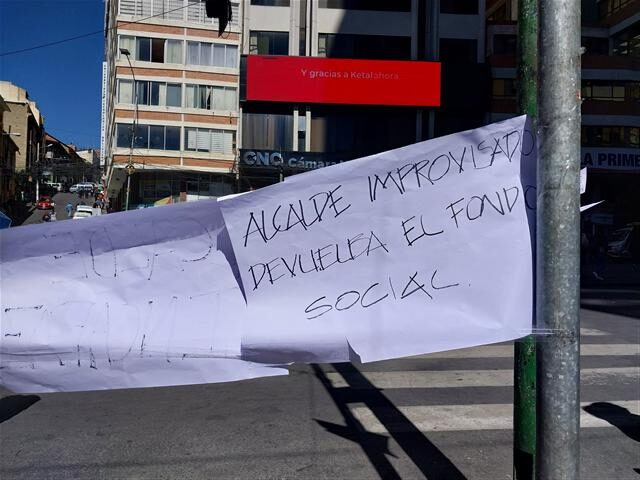 Y gracias a Ketalahora
CNC Cámara
A PRIME
ALCALDE IMPROVISADO
DEVUELBA EL FONDO
SOCIAL.